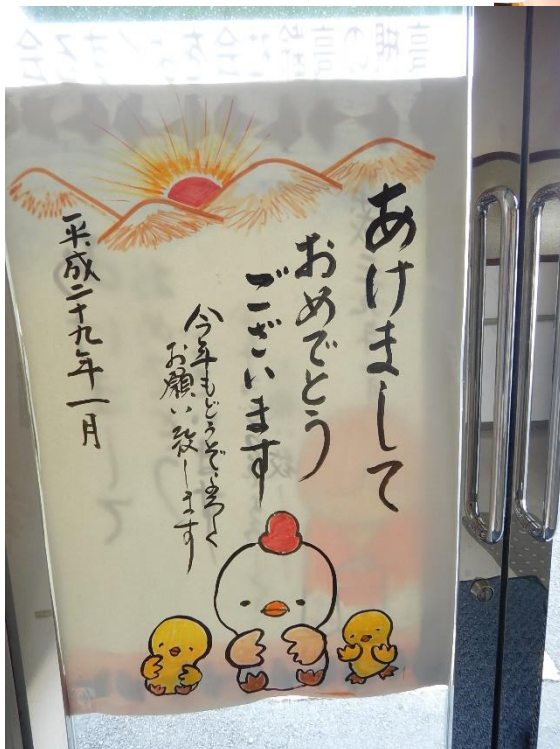 あけまして
おめでとう
ございます
今年もどうぞよろしく
お願い致します
平成二十九年一月